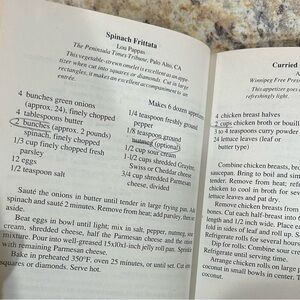 Spinach Frittata
Lou Pappas
The Peninsula Times Tribune, Palo Alto, CA
This vegetable-strewn omelet is excellent as an appetizer when cut into squares or diamonds. Cut in large
rectangles, it makes an excellent accompaniment to an
entrée.
Makes 6 dozen appetizers
4 bunches green onions
(approx. 24), finely chopped
4 tablespoons butter
2 bunches (approx. 2 pounds)
spinach, finely chopped
1/3 cup finely chopped fresh
parsley
12 eggs
1/2 teaspoon salt
1/4 teaspoon freshly ground
pepper
1/8 teaspoon ground
nutmeg (optional)
1/2 cup sour cream
1-1/2 cups shredded Gruyère,
Swiss or Cheddar cheese
3/4 cup shredded Parmesan
cheese, divided
Sauté the onions in butter until tender in large frying pan. Add
spinach and sauté 2 minutes. Remove from heat; add parsley, then set
aside.
Beat eggs in bowl until light; mix in salt, pepper, nutmeg, sour
cream, shredded cheese, half the Parmesan cheese and the onion
mixture. Pour into well-greased 15x10x1-inch jelly roll pan. Sprinkle
with remaining Parmesan cheese.
Bake in preheated 350°F. oven 25 minutes, or until set. Cut into
squares or diamonds. Serve hot.
Curried
Winnipeg Free Press
This appetizer goes
refreshingly light.
4 chicken breast halves
2 cups chicken broth or bouillon
3 to 4 teaspoons curry powder
24 lettuce leaves (leaf or
butter type)
Combine chicken breasts, broth
and simmer. Bring to
tender. Remove from heat; refrigerate
chicken to cool in broth for several
lettuce leaves and pat dry.
Remove chicken breasts from
Cut each half-breast into
length and 1/2 inch wide. Place each
fold in sides of leaf and roll up. S
Refrigerate rolls for several hours
Dip for rolls: Combine
Refrigerate until serving time.
Arrange chicken rolls on large
coconut in small bowls in center. T
coconut.